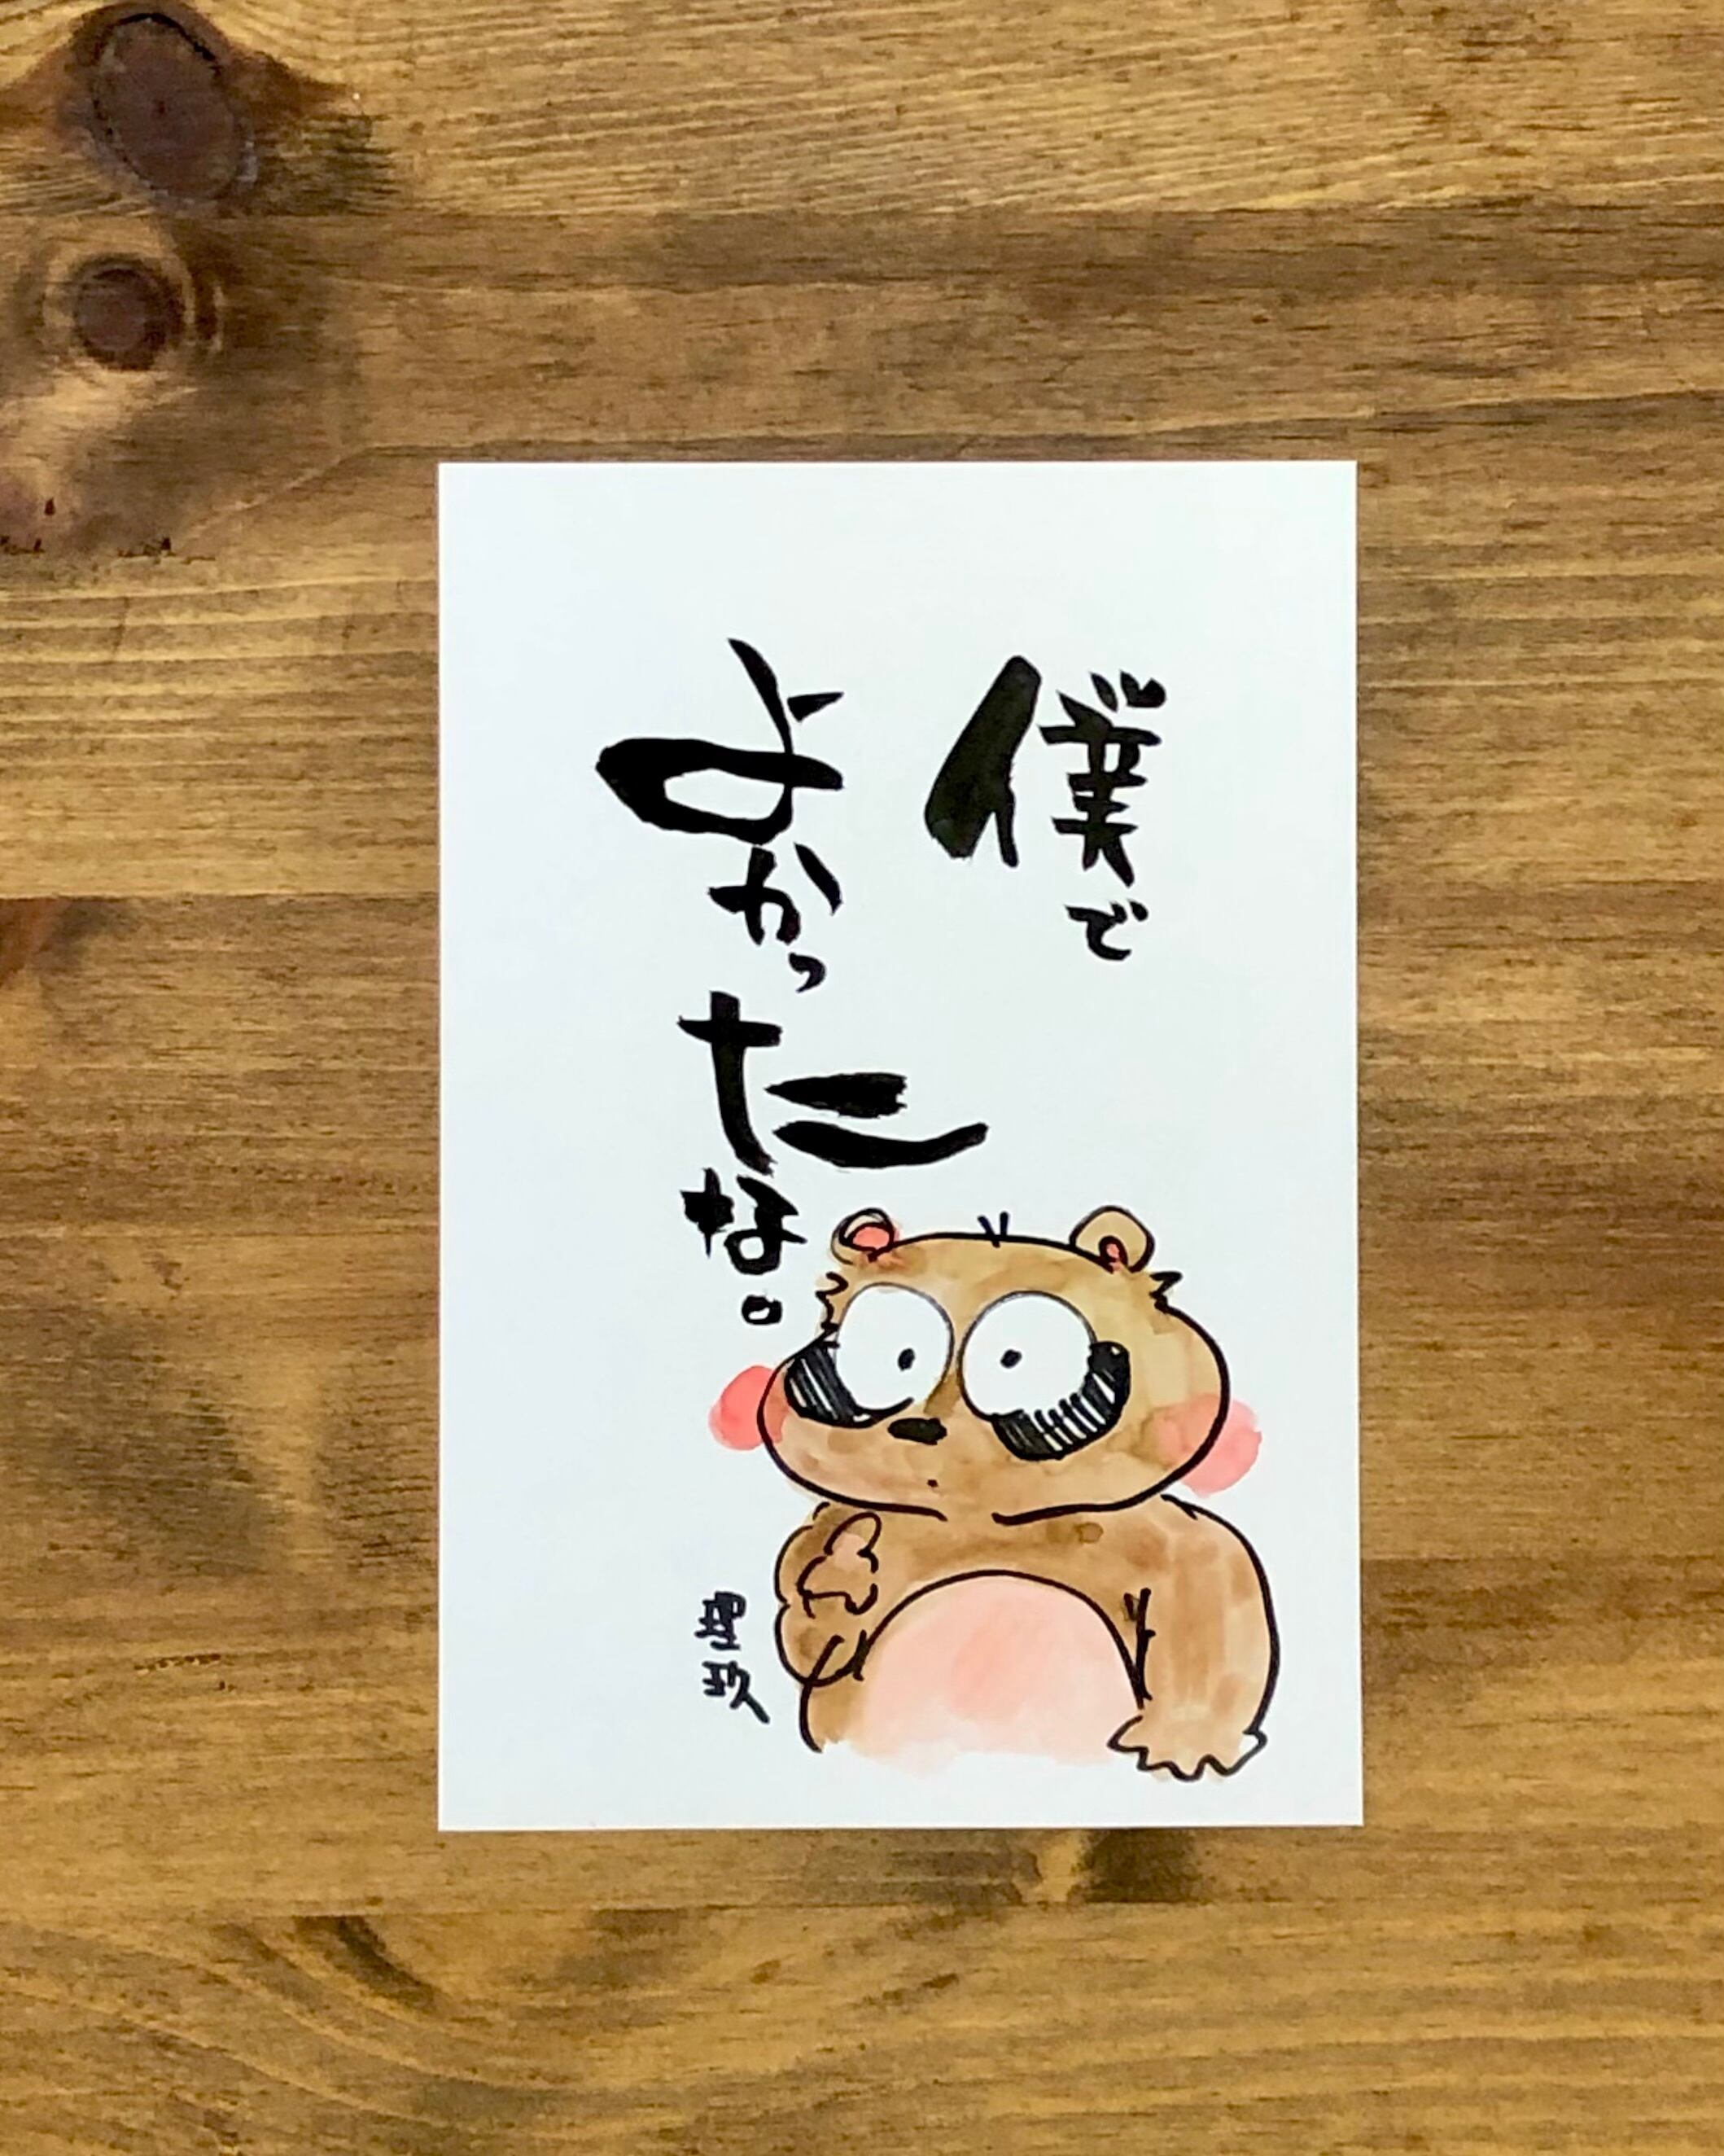 僕で
よかったな。
理玖